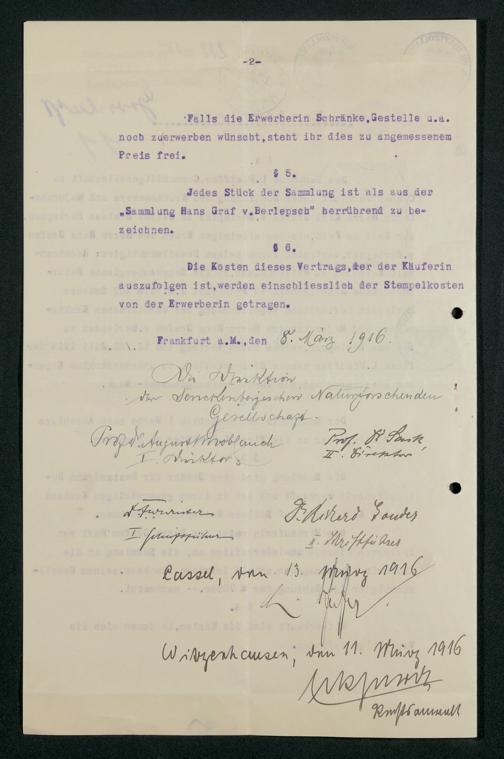 -2-
Falls die Erwerberin Schränke,Gestelle u.a.
noch zuerwerben wünscht,steht ihr dies zu angemessenem
Preis frei.
§ 5.
Jedes Stück der Sammlung ist als aus der
„Sammlung Hans Graf v.Berlepsch" herrührend zu be-
zeichnen.
§ 6.
Die Kosten dieses Vertrags,der der Käuferin
auszufolgen ist,werden einschliesslich der Stempelkosten
von der Erwerberin getragen.
Frankfurt a.M.,den 8. März 1916.
Die Direktion
der Senckenbergischen Naturforschenden
Gesellschaft.
Prof. Dr August Knoblauch
I. Direktor
Prof. R
II. Direktor
I. Schriftführer
Dr. Richard Sander
II. Schriftführer
Cassel, den 13. März 1916
Witzenhausen, den 11. März 1916
Rechtsanwalt